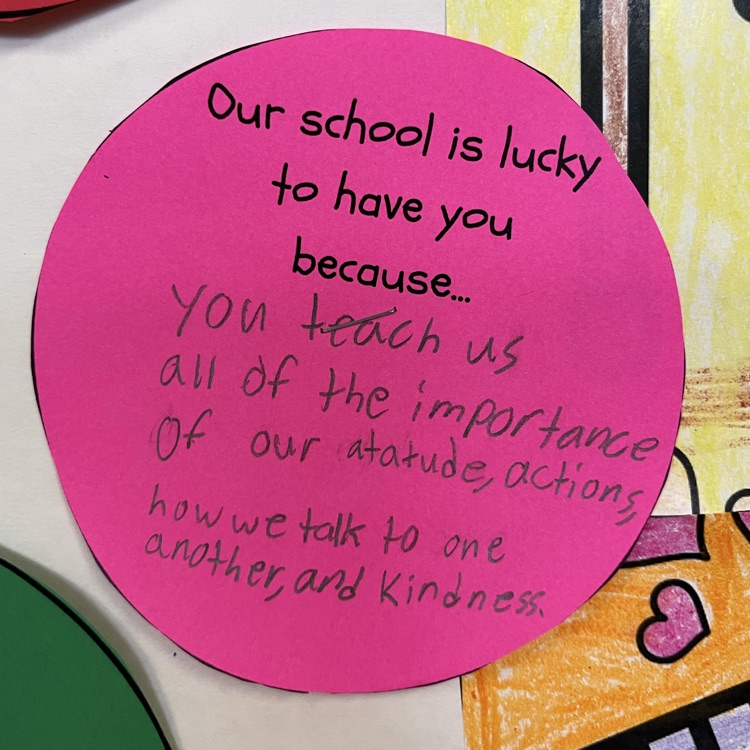 Our school is lucky
to have you
because...
You teach us
all of the importance
Of our atatude, actions,
how we talk to one
another, and kindness.